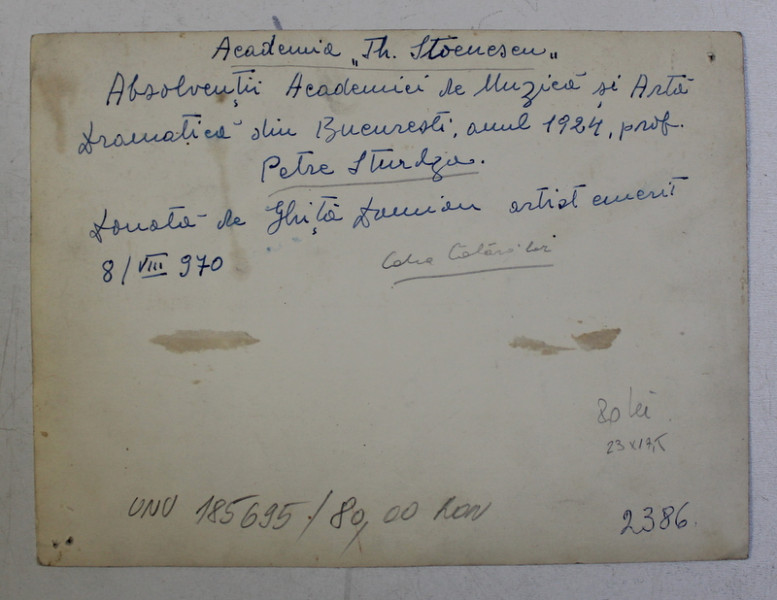 Academia „Th. Stoenescu„
Absolvenții Academiei de Muzică și Artă
Dramatică din București, anul 1924, prof.
Petre Sturdza.
Donată de Ghiță Damian artist emerit
8/VIII 970
Calea Călărăşilor
80 lei
23 x 17,5
UNU 185695 / 80,00 Ron
2386.